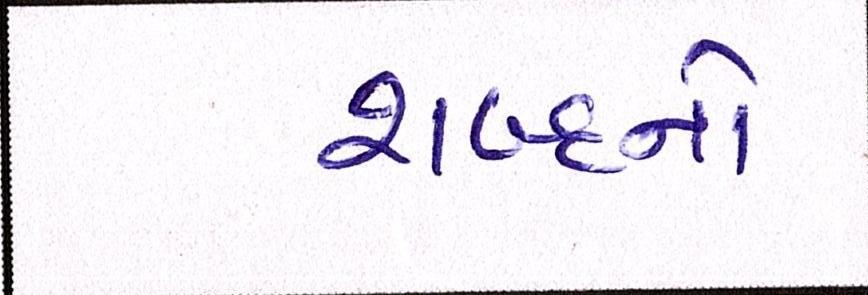 શબ્દનો